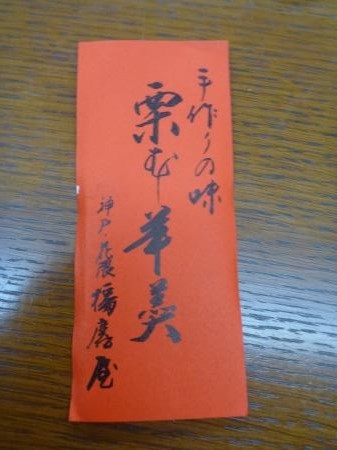 手作りの味
栗むし羊羹
神戸・花隈 播磨屋